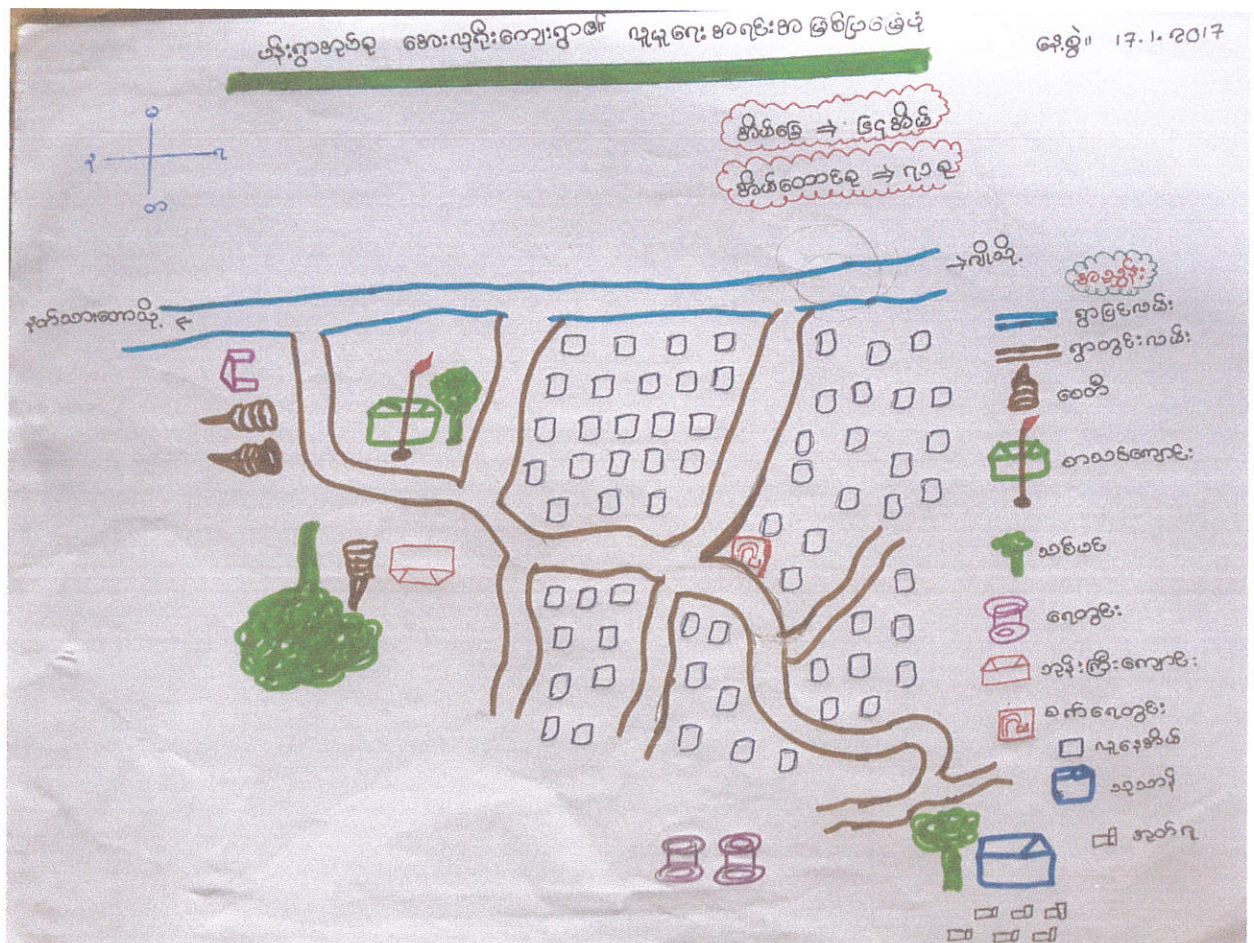 ဟန်းရွာအုပ်စု အေးလှဦးကျေးရွာ၏ လူမှုရေး အရင်းအမြစ်ပြမြေပုံ
နေ့စွဲ။ 17.1.2017
အိမ်ခြေ ⇒ ၆၄အိမ်
အိမ်ထောင်စု ⇒ ၇၁စု
မ
န
ရ
တ
→ လိုသို့
နတ်သားတောသို့ ←
အညွှန်း
ရွာပြင်လမ်း
ရွာတွင်းလမ်း
စေတီ
စာသင်ကျောင်း
သစ်ပင်
ရေတွင်း
ဘုန်းကြီးကျောင်း
စက်ရေတွင်း
လူနေအိမ်
သုသာန်
အုတ်ဂူ